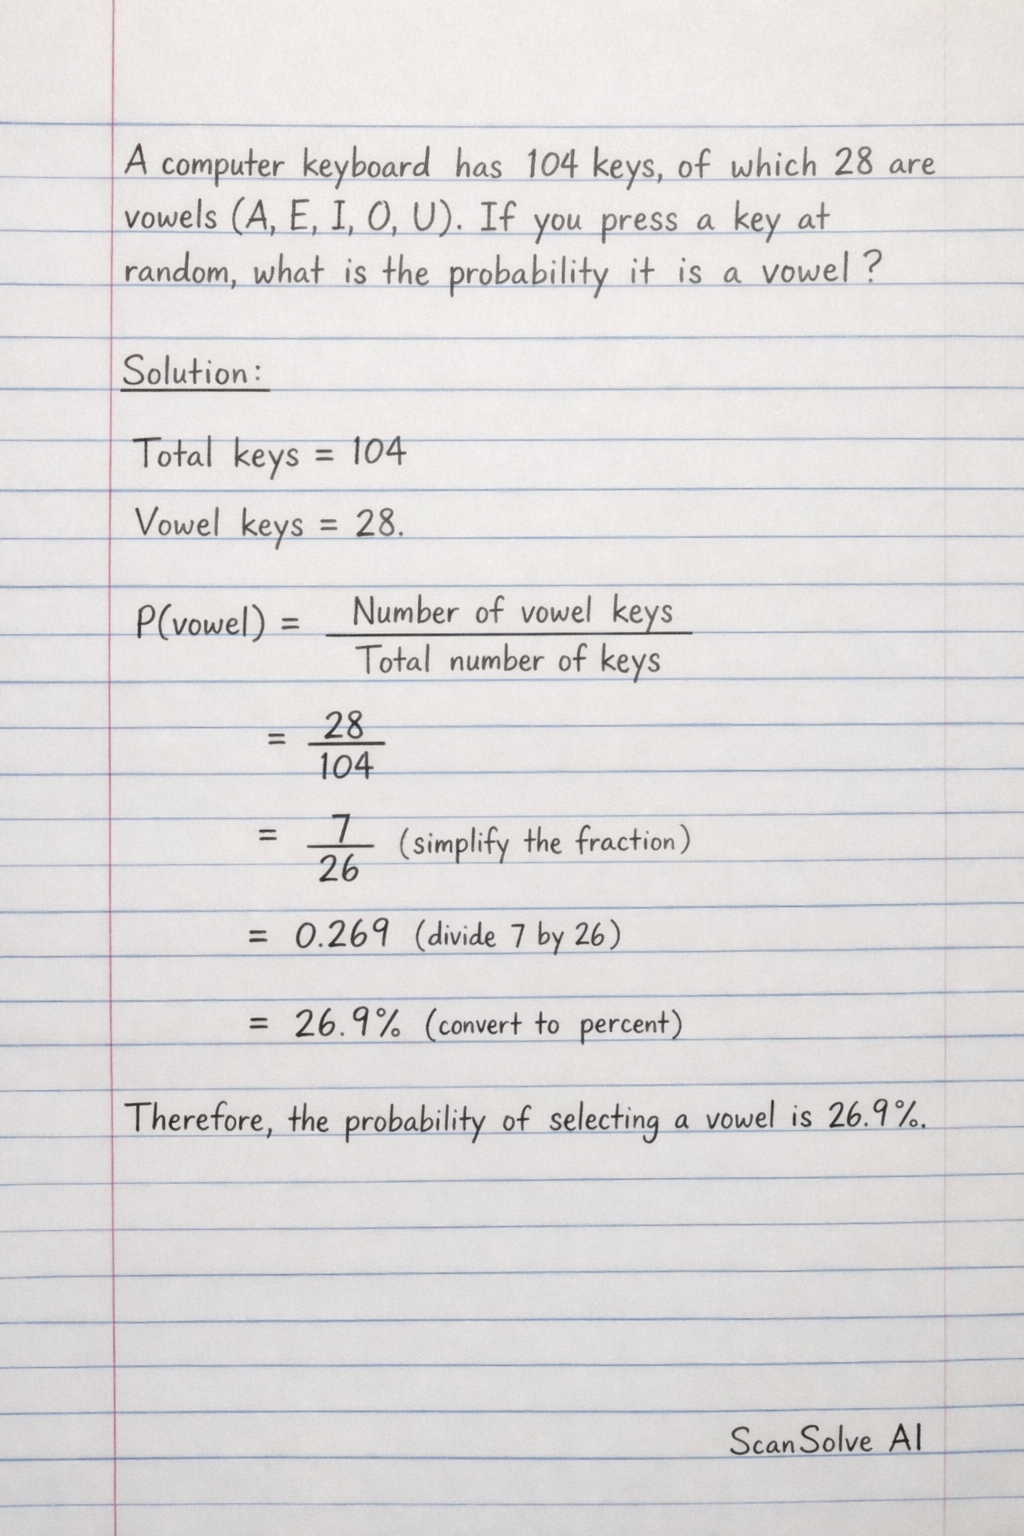 A computer keyboard has 104 keys, of which 28 are
vowels (A, E, I, O, U). If you press a key at
random, what is the probability it is a vowel?
Solution:
Total keys = 104
Vowel keys = 28.
P(vowel) = Number of vowel keys
Total number of keys
= 28
104
= 7 (simplify the fraction)
26
= 0.269 (divide 7 by 26)
= 26.9% (convert to percent)
Therefore, the probability of selecting a vowel is 26.9%.
ScanSolve AI